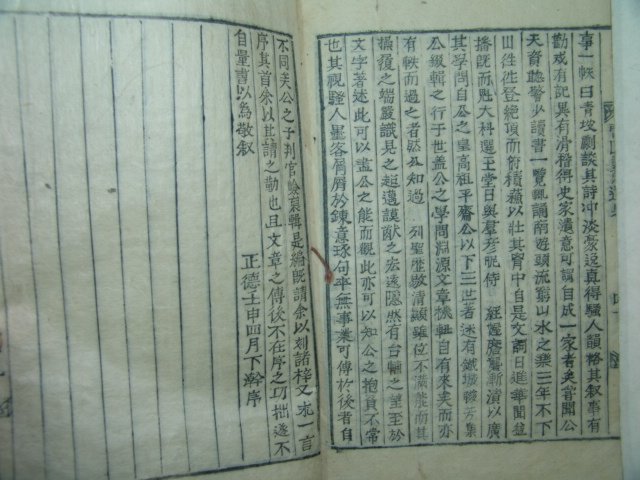 事一帙曰青坡劇談其詩冲淡蒙逸真得騷人韻格其叙事有
勸戒有記異有滑稽得史家遺意可謂自成一家者矣嘗聞公
天資聰警少讀書一覽輒誦南遊頭流窮山水之樂三年不下
山往往登絶頂而俯積蘇以壯其胷中自是文詞日進華聞益
播旣而魁大科選玉堂日與羣彦昵侍 經幄膺漸漬以廣
其學問自公之皇高祖平齋公以下三世著述有鐵城聯芳集
公綴輯之行于世盖公之學問淵源文章機軸自有來矣而亦
有軼而過之者然公知遇 列聖歴敭清顯雖位不滿能而其
攝履之端嚴識見之超邁謨猷之宏遠隱然有台輔之望至於
文字著述此可以盡公之能而觀此亦可以知公之抱負不常
也其視騷人墨客屑屑於鍊意琢句卒無事業可傳於後者自
不同矣公之子判官 裒輯是編旣請余以刻諸梓又求一言
序其首余以其請之勤也且文章之傳後不在序之巧拙遂不
自量書以爲敬叙
正德壬申四月下澣序